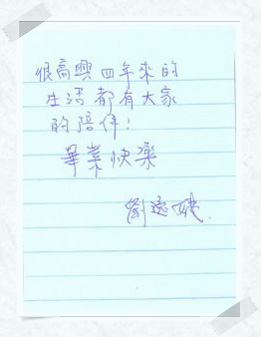 很高興四年來的
生活都有大家
的陪伴!
畢業快樂
劉